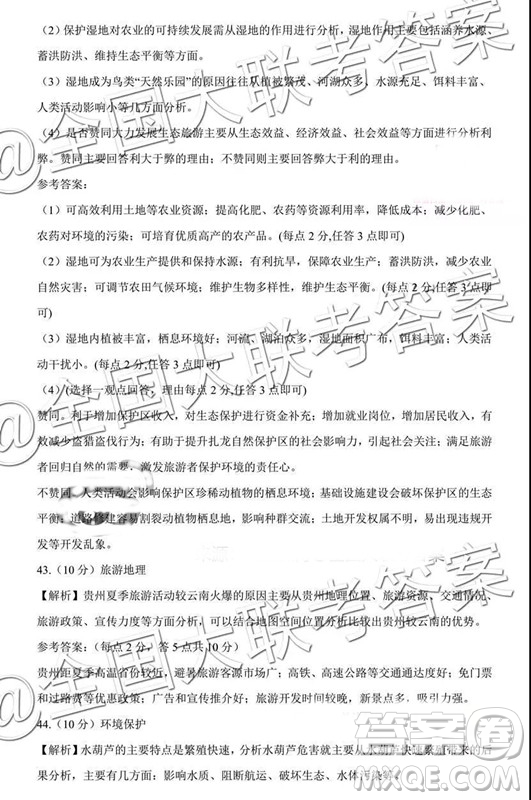 （2）保护湿地对农业的可持续发展需从湿地的作用进行分析，主要包括涵养水源、
蓄洪防洪、维持生态平衡等方面。
（3）湿地成为鸟类“天然乐园”的原因往往从植被繁茂、河湖众多、水源充足、饵料丰富、
人类活动影响小等几方面分析。
（4）是否赞同大力发展生态旅游主要从生态效益、经济效益、社会效益等方面进行分析利
弊。赞同主要回答利大于弊的理由；不赞同则主要回答弊大于利的理由。
参考答案：
（1）可高效利用土地等农业资源；提高化肥、农药等资源利用率，降低成本；减少化肥、
农药对环境的污染；可培育优质高产的农产品。(每点 2 分,任答 3 点即可)
（2）湿地可为农业生产提供和保持水源；有利抗旱，保障农业生产；蓄洪防洪，减少农业
自然灾害；可调节农田气候环境；维护生物多样性，维护生态平衡。(每点 2 分,任答 3 点即
可)
（3）湿地内植被丰富，栖息环境好；河流、湖泊众多；湿地面积广布，饵料丰富；人类活
动干扰小。(每点 2 分,任答 3 点即可)
（4）(选择一观点回答；理由每点 2 分,任答 3 点即可)
赞同。利于增加保护区收入，对生态保护进行资金补充；增加就业岗位，增加居民收入，有
效减少盗猎盗伐行为；有助于提升扎龙自然保护区的社会影响力，引起社会关注；满足旅游
者回归自然的需要，激发旅游者保护环境的责任心。
不赞同。人类活动会影响保护区珍稀动植物的栖息环境；基础设施建设会破坏保护区的生态
平衡；道路修建容易割裂动植物栖息地，影响种群交流；土地开发不利，易出现违规开发
等开发乱象。
43.（10 分）旅游地理
【解析】贵州夏季旅游活动较云南火爆的原因主要从贵州地理位置、旅游资源、交通状况、
旅游政策、宣传力度等方面分析，可以结合地图空间位置分析比贵州较云南的优势。
参考答案：（每点 2 分，答 5 点共 10 分）
贵州距夏季高温省份较近，避暑旅游市场广；高铁、高速公路等交通通达度好；免门票
和过路费等方式优惠政策；广告和宣传推介好；旅游开发时间较晚，新景点多，吸引力强。
44.（10 分）环境保护
【解析】水葫芦的主要特点是繁殖快速，分析水葫芦危害就主要从水葫芦快速繁殖带来的后
果分析，主要有几方面：影响水质、阻断航运、破坏生态、水体污染等。
@全国大联考答案
@全国大联考答案
答案卷